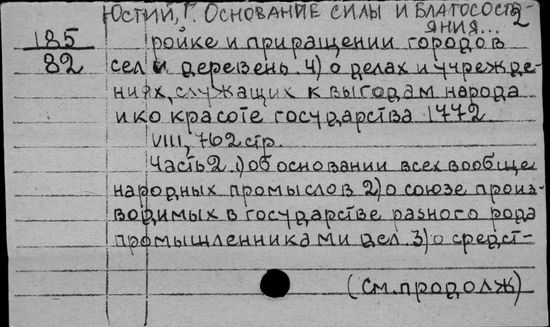 Юстий, Г. Основание силы и благосост-
яния... 2
185
82
ройке и приращении городов
сел и деревень. 4) о делах и учрежде-
ниях, служащих к выгодам народа
и ко красоте государства 1772.
VIII, 762 стр.
Часть 2. 1) об основании всех вообще
народных промыслов 2) о союзе произ-
водимых в государстве разного рода
промышленниками дел. 3) о средст-
(См. продолж)